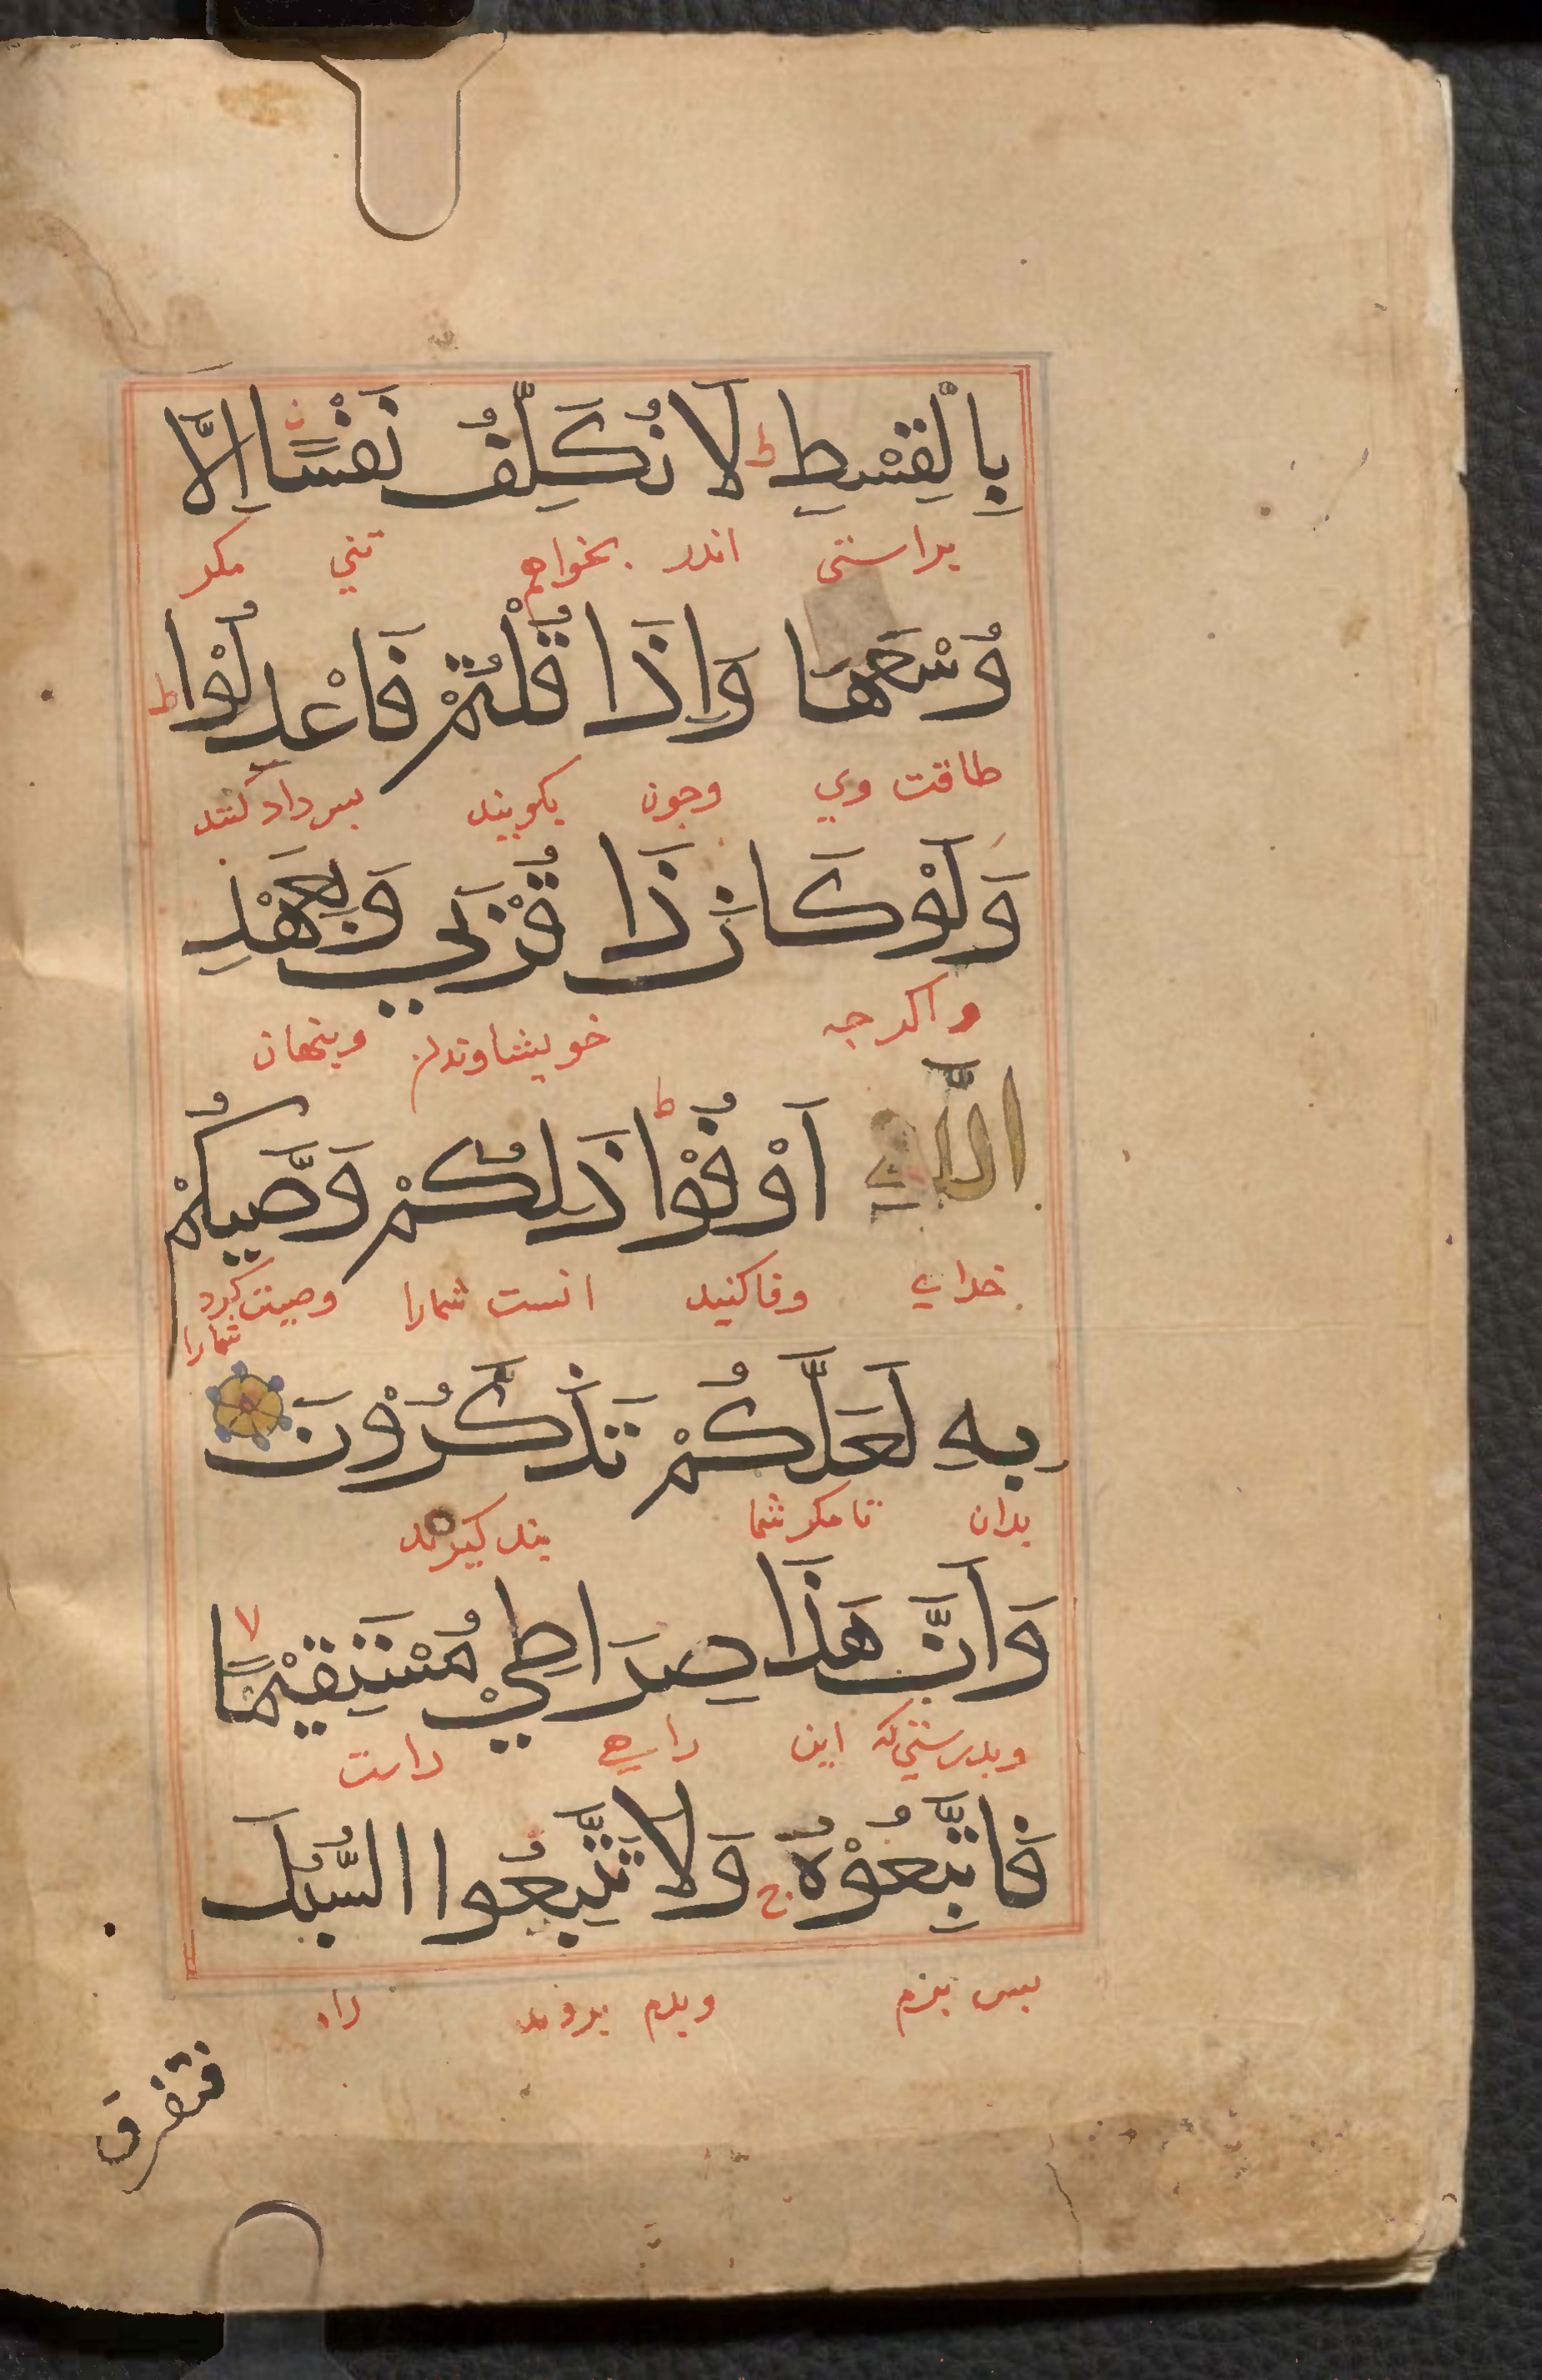 بِالْقِسْطِ ط لَا نُكَلِّفُ نَفْسًا اِلَّا
براستی اندر بخواهم تني مکر
وُسْعَهَا وَاِذَا قُلْتُمْ فَاعْدِلُوْا ط
طاقت وي وجون بکویند بس داد کنند
وَلَوْ كَانَ ذَا قُرْبَي وَبِعَهْدِ
واکر جه خویشاوندان وپنهان
اللَّهِ اَوْفُوْا ط ذَلِكُمْ وَصَّيكُمْ
خداي وفا کنید انست شمارا وصیت کرد
شمارا
بِهِ لَعَلَّكُمْ تَذَكَّرُوْنَ
بدان تا مکر شما پند کیرند
وَاَنَّ هَذَا صِرَاطِيْ مُسْتَقِيْمًا لا
وبدرستي که این راهي راست
فَاتَّبِعُوْهُ ج وَلَا تَتَّبِعُوا السُّبُلَ
بس وبدم بروند راه
فتفرق